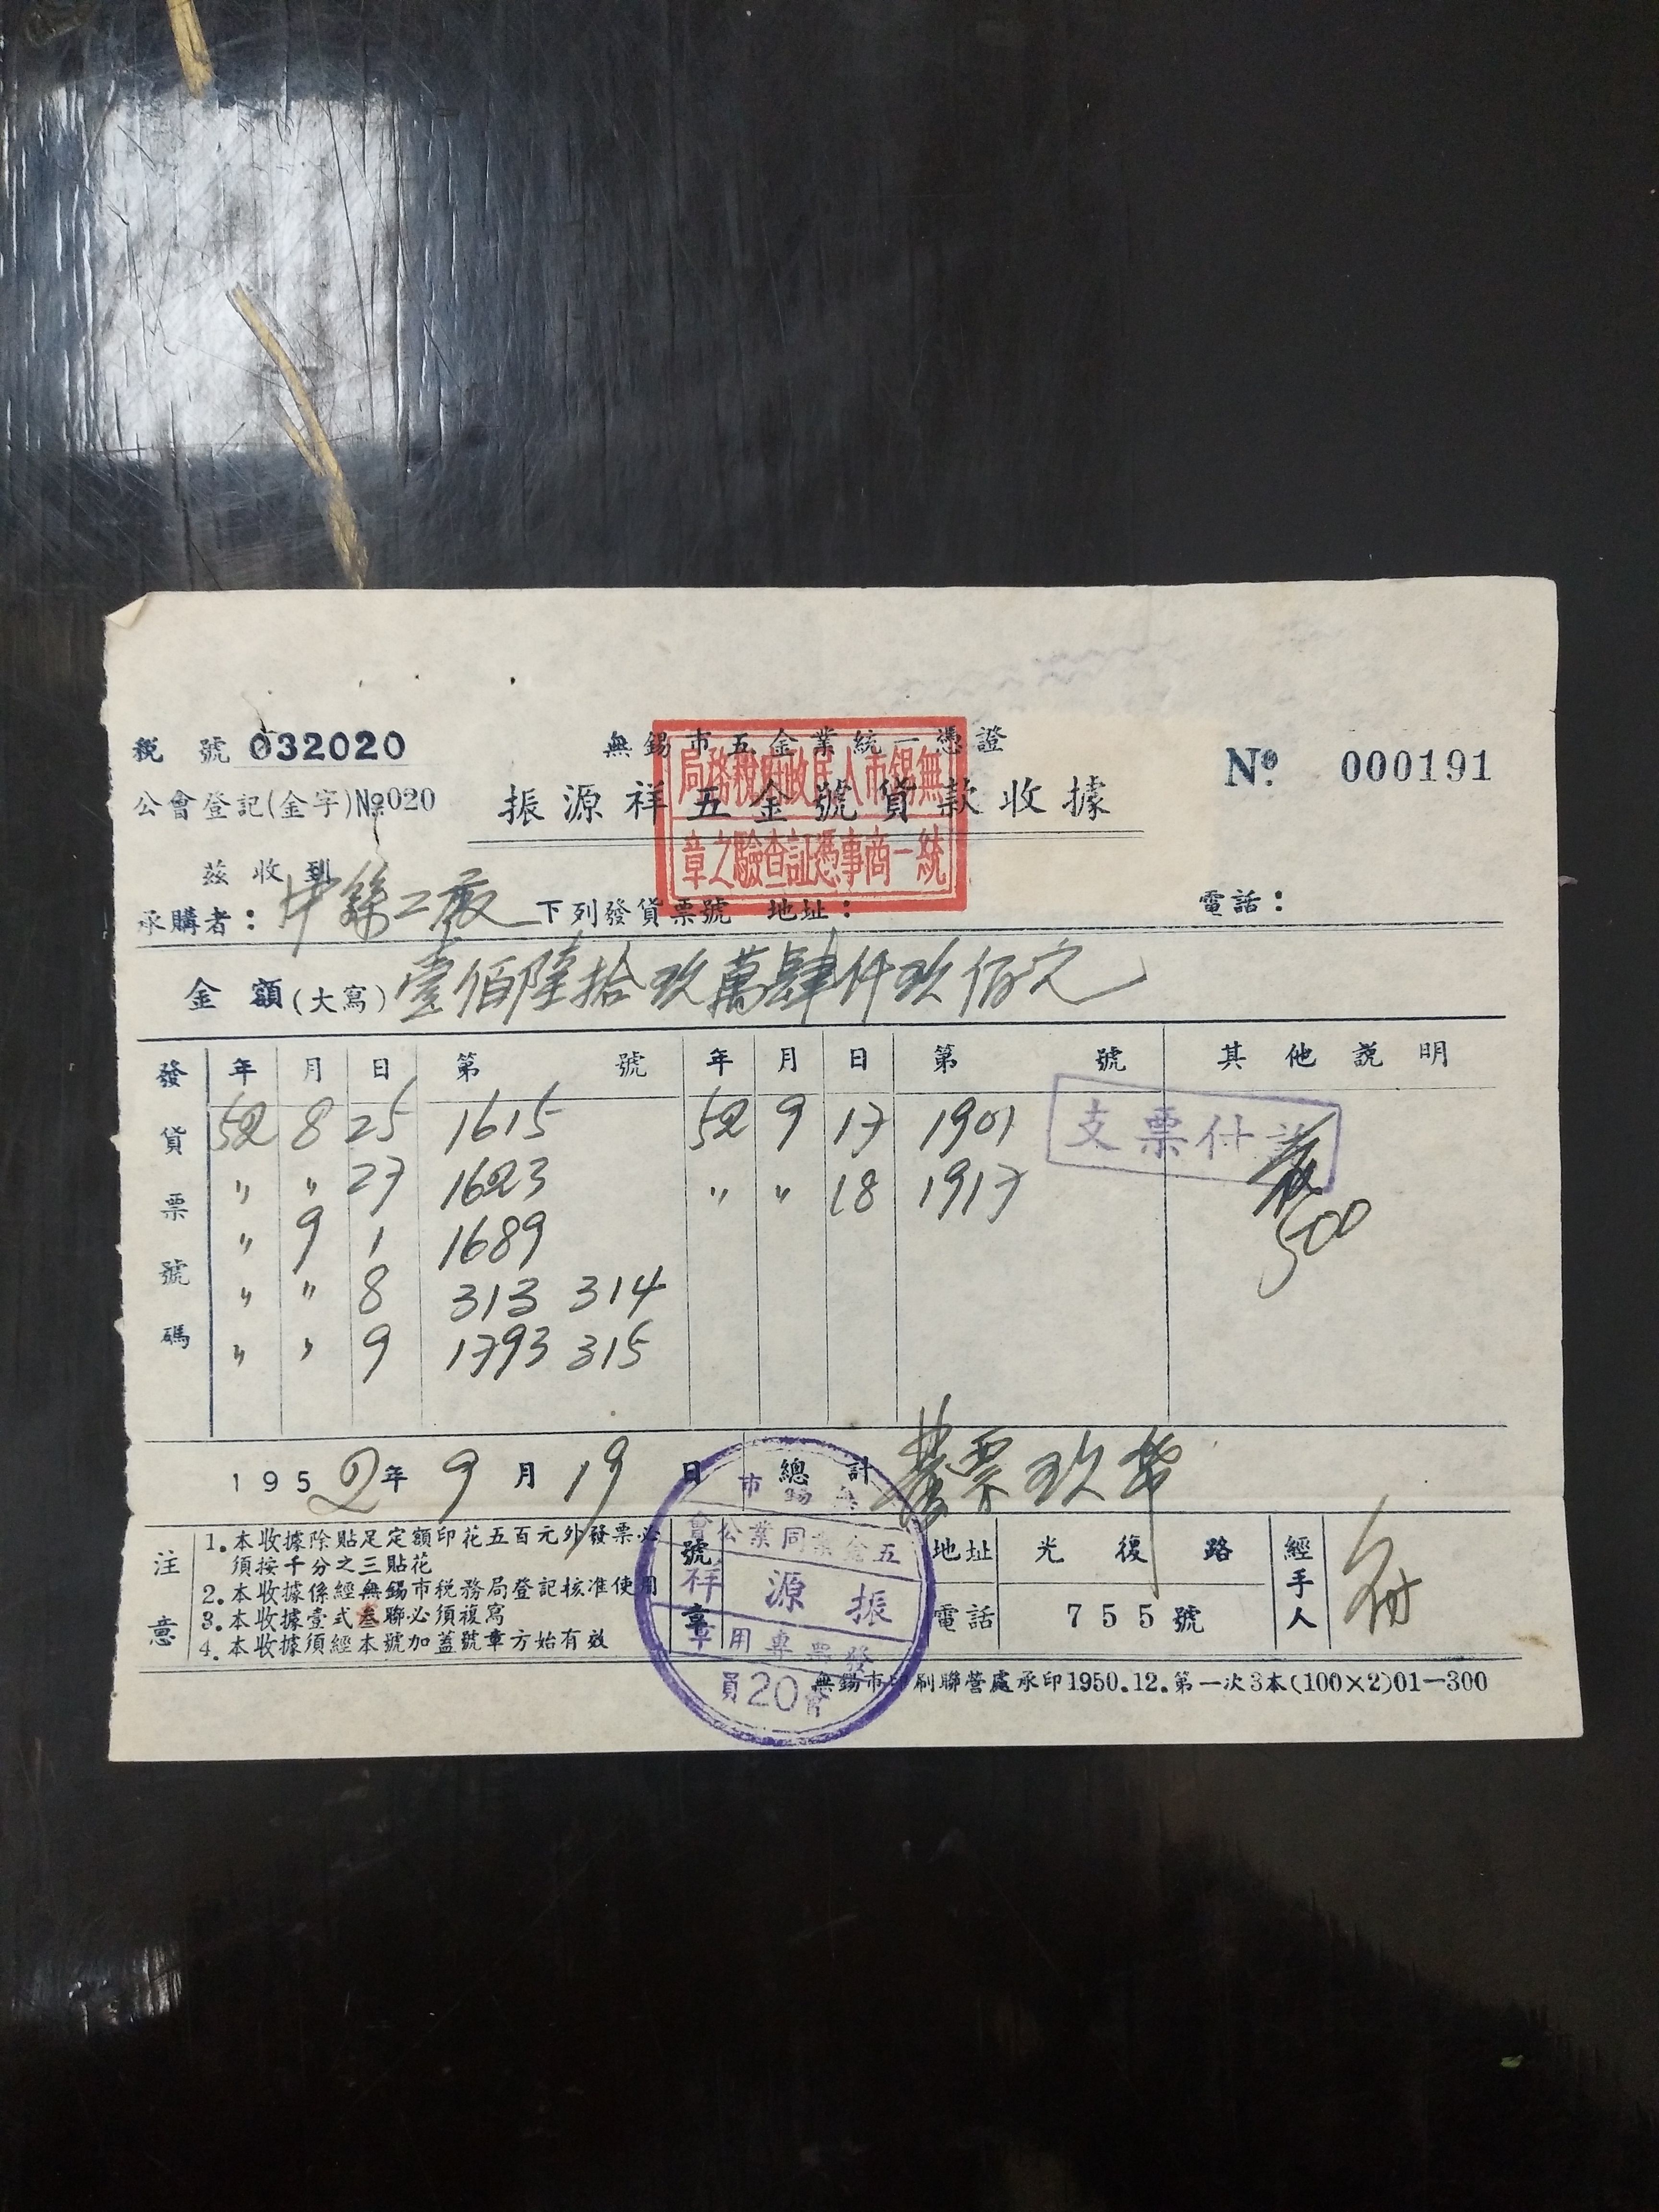 稅號 032020
無錫市五金業統一憑證
No. 000191
公會登記(金字)No.020
振源祥五金號貨款收據
無錫市人民政府稅務局
統一商事憑証查驗之章
茲收到
承購者：中絲工廠 下列發貨票號 地址： 電話：
金額(大寫) 壹佰陸拾玖萬肆仟玖佰元
發貨票號碼 年 月 日 第 號 年 月 日 第 號 其他說明
52 8 25 1615 52 9 17 1901
〃 〃 27 1623 〃 〃 18 1917
〃 9 1 1689
〃 〃 8 313 314
〃 〃 9 1793 315
支票付訖
500
1952年9月19日 總計 發票玖
注意
1.本收據除貼足定額印花五百元外發票必
須按千分之三貼花
2.本收據係經無錫市稅務局登記核准使用
3.本收據壹式叁聯必須複寫
4.本收據須經本號加蓋號章方始有效
號章
無錫市
五金業同業公會
振源祥
發票專用章
會員20
地址 光復路
電話 755號
經手人
無錫市印刷聯營處承印1950.12.第一次3本(100×2)01—300